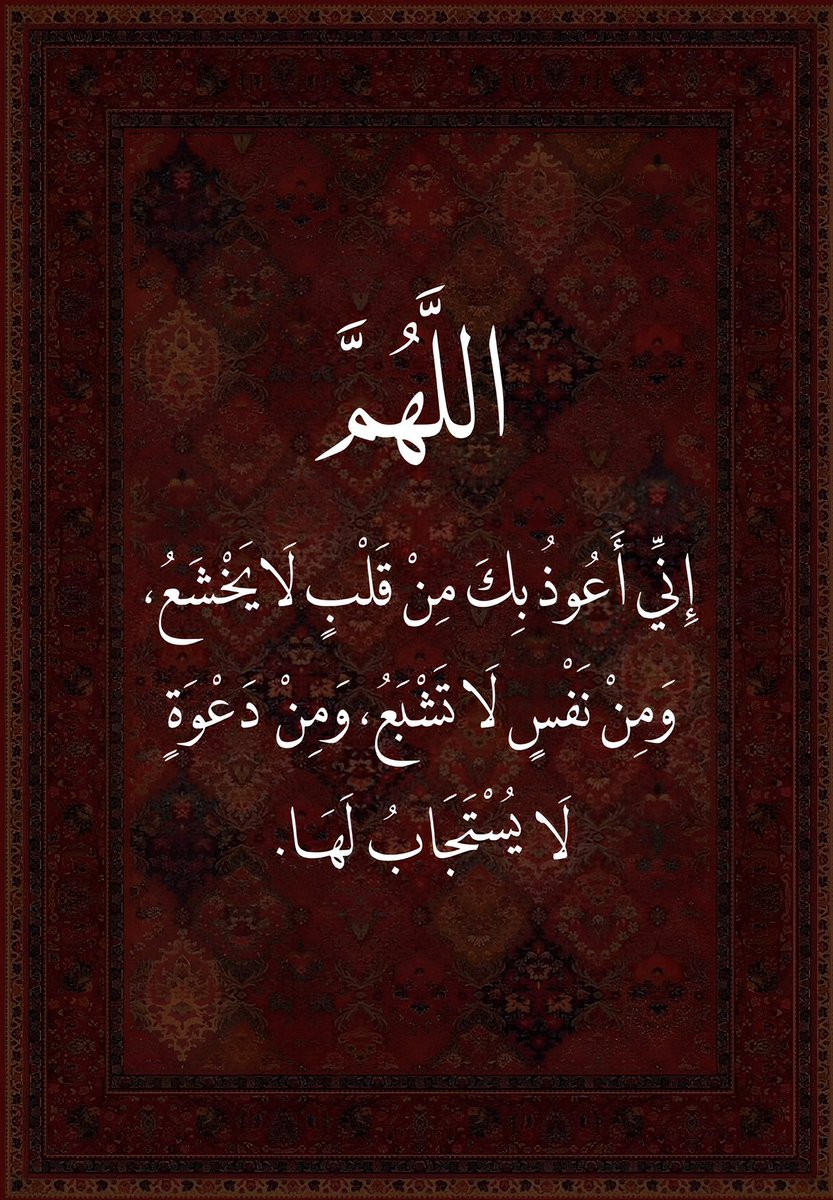 اللَّهُمَّ
إِنِّي أَعُوذُ بِكَ مِنْ قَلْبٍ لَا يَخْشَعُ،
وَمِنْ نَفْسٍ لَا تَشْبَعُ، وَمِنْ دَعْوَةٍ
لَا يُسْتَجَابُ لَهَا.